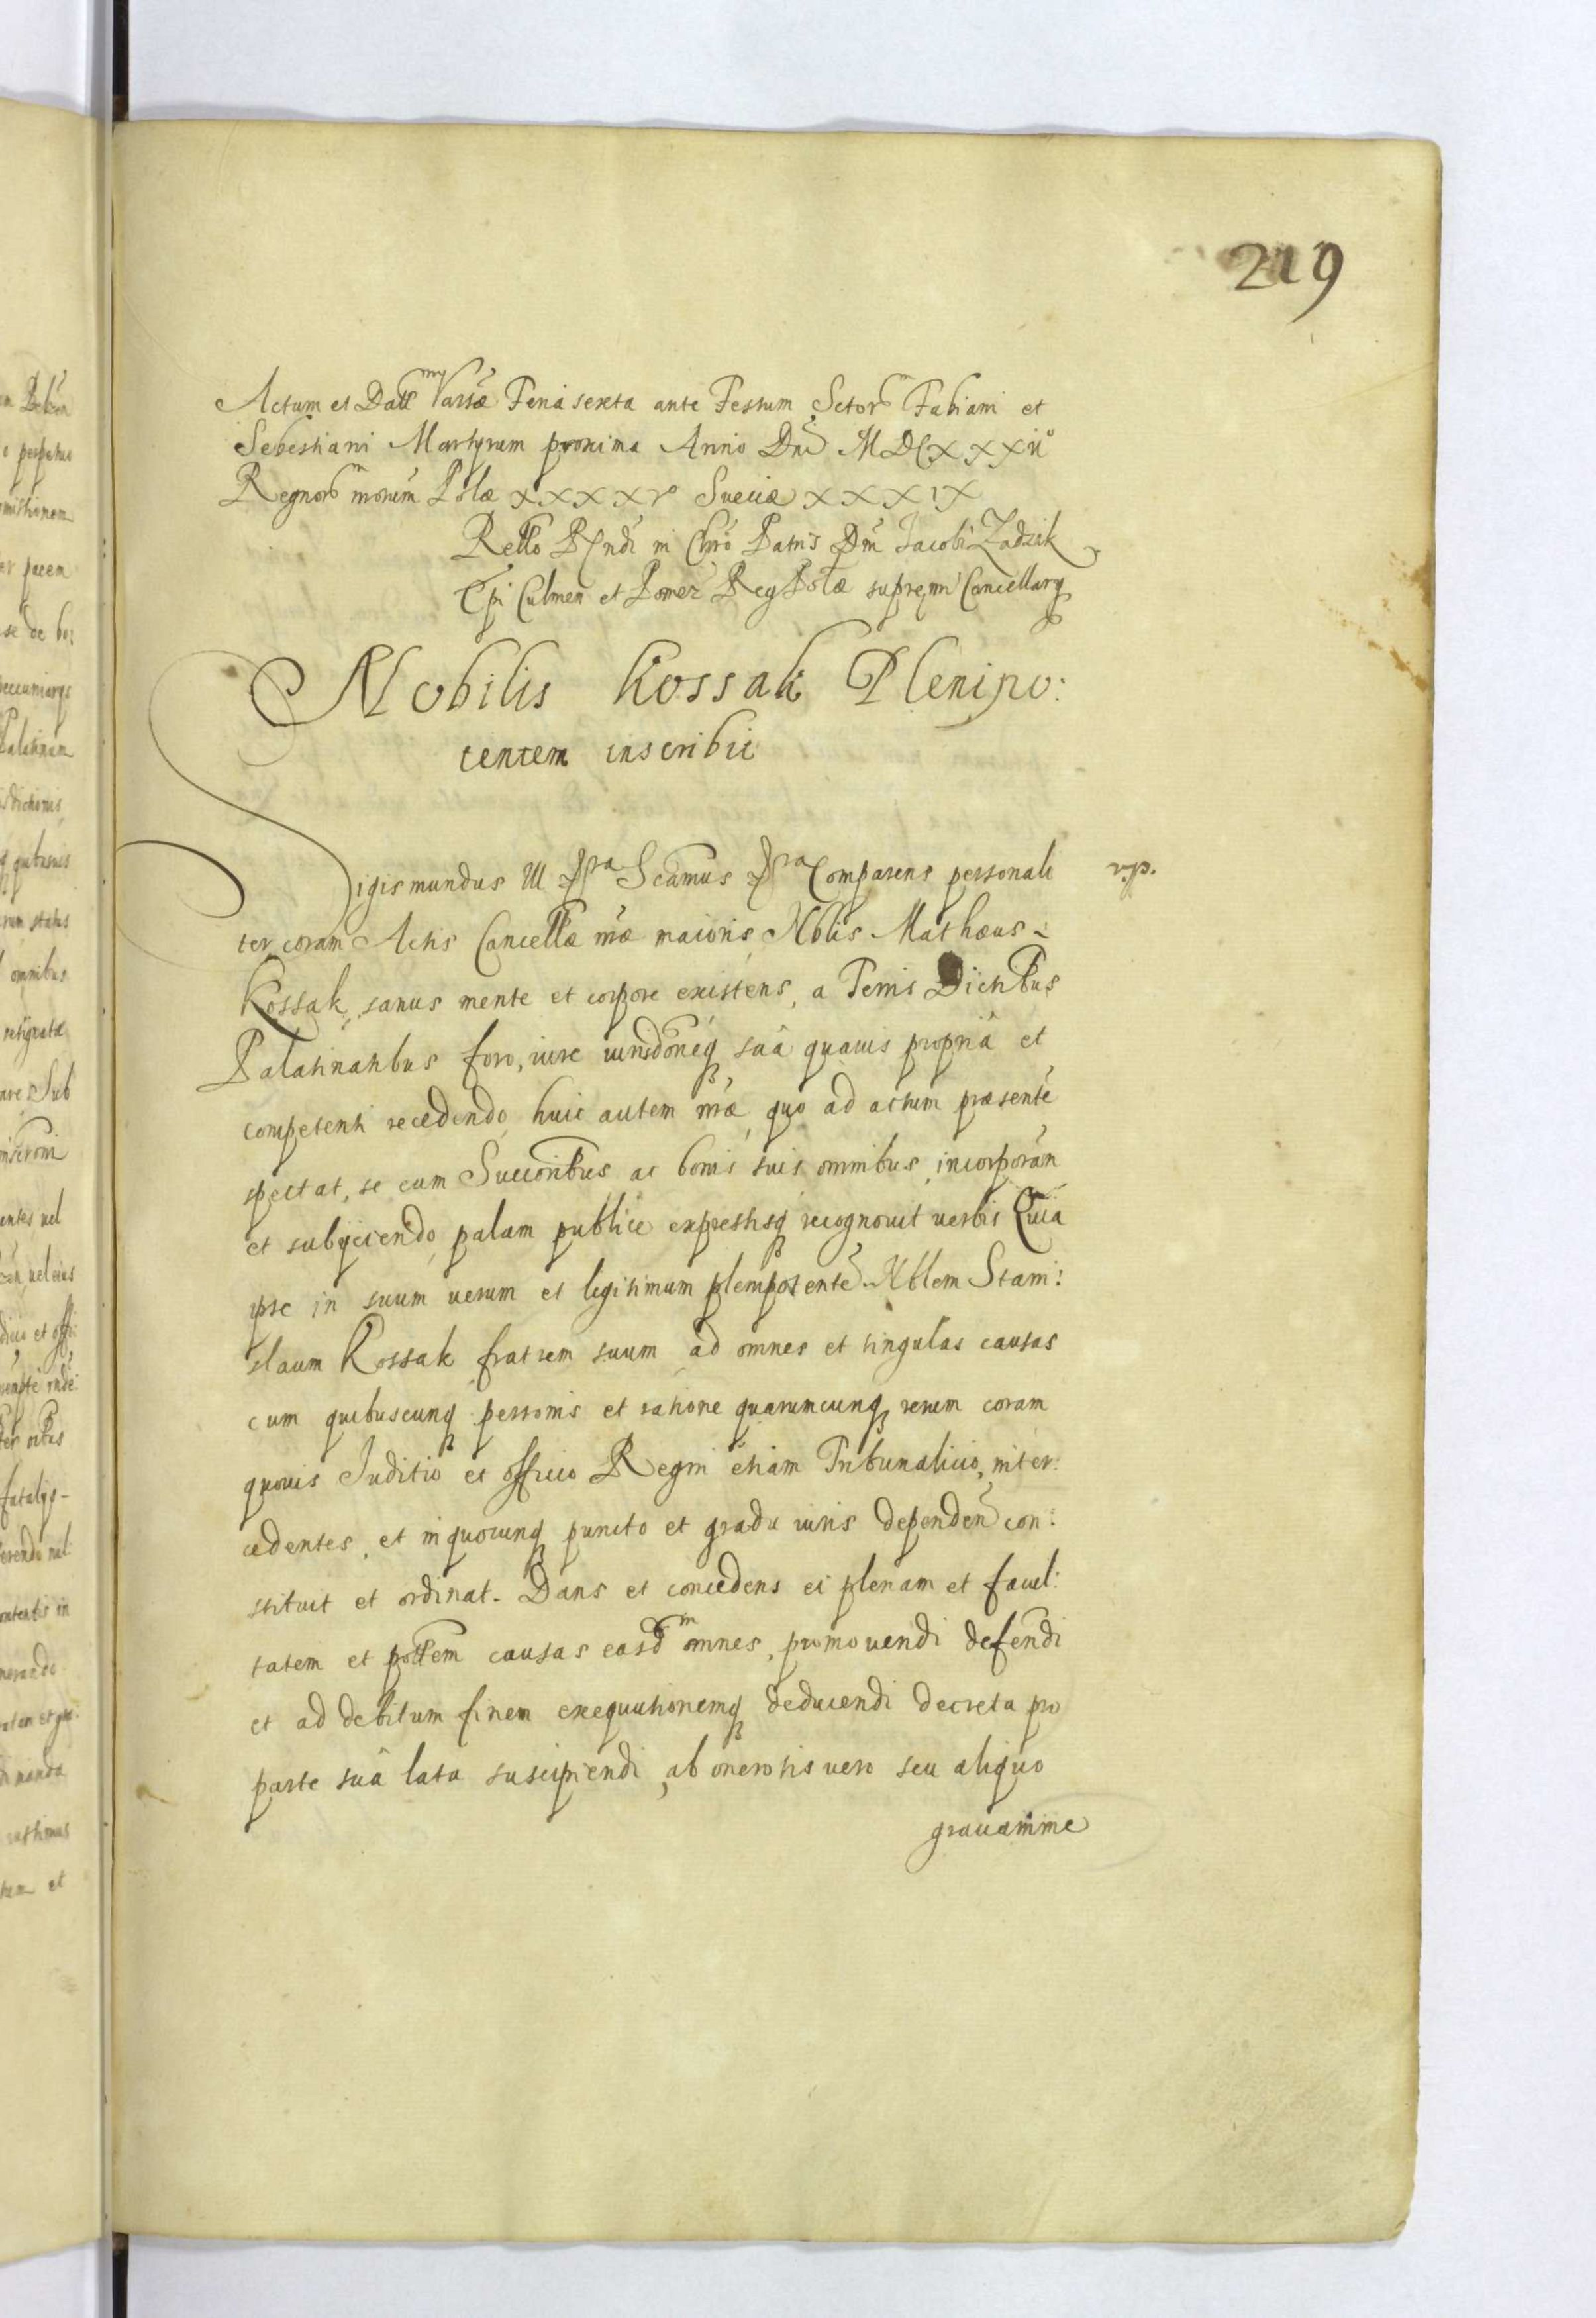 219
Actum et Datt Varsae Feria sexta ante Festum Sctorm Fabiani et
Sebestiani Martyrum proxima Anno Dni MDCXXXIIo
Regnorm nrorum Polae XXXXVo Sueciae XXXIX
Rello Rndi in Chro Patris Dni Jacobi Zadzik
Epi Culmen et Pomez Reg Polae supremi Cancellarÿ
Nobilis Kossak Plenipo:
tentem inscribit
Sigismundus III Scamus Comparens personali
ter coram Actis Cancellae nrae maioris Nblis Mathaeus
Kossak, sanus mente et corpore existens, a Terris Dictibus
Palatinatibus foro, iure iurisdoneq suâ quauis propriâ et
competenti recedendo, huic autem nrae, quo ad actum praesente
spectat, se cum Succoribus ac bonis suis omnibus, incorporan
et subijciendo, palam publice expressisq recognouit uerbis Quia
ipse in suum uerum et legitimum plenipotente Nblem Stani:
slaum Kossak fratrem suum ad omnes et singulas causas
cum quibuscunq personis et ratione quaruncunq rerum coram
quouis Juditio et officio Regni etiam Tribunalicio, inter:
cedentes, et in quocunq puncto et gradu iuris dependen con:
stituit et ordinat. Dans et concedens ei plenam et facul:
tatem et pottem causas easdm omnes, promouendi defendi
et ad debitum finem exequutionemq deducendi decreta pro
parte suâ lata suscipiendi, ab onerosis uero seu aliquo
grauamine